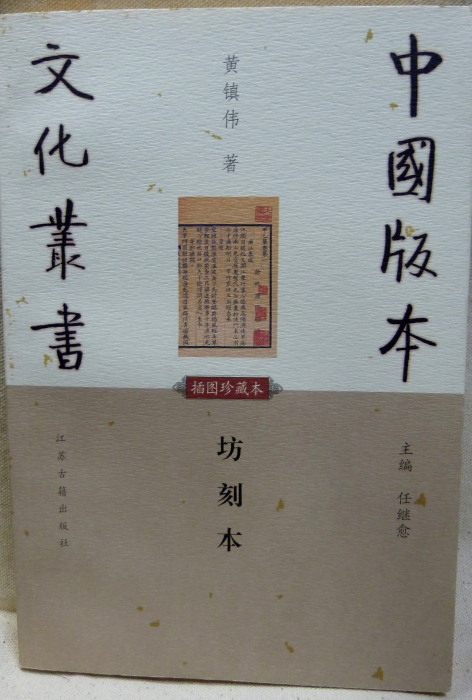 中國版本
文化叢書
黄镇伟 著
插图珍藏本
坊刻本
主编 任继愈
江苏古籍出版社